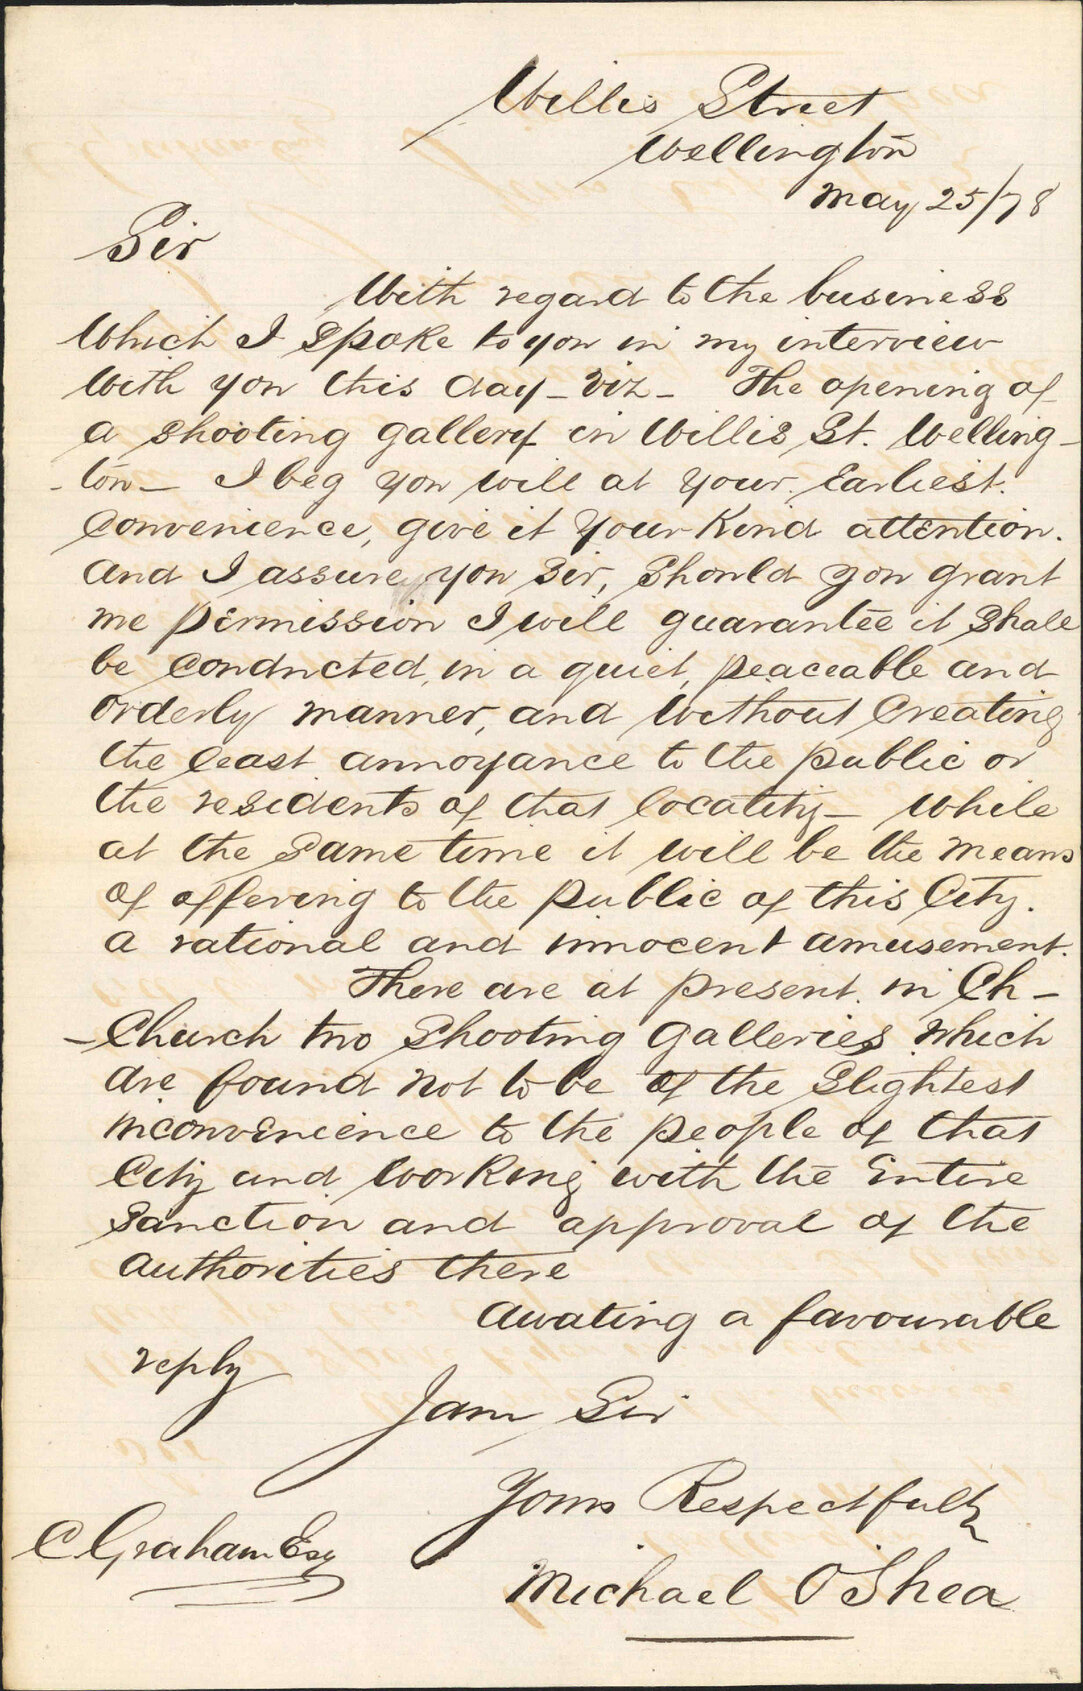 Willis Street
Wellington
May 25/78
Sir
With regard to the business
Which I Spoke to you in my interview
With you this day - Viz - The opening of
a shooting gallery in Willis St. Welling-
-ton - I beg you will at your Earliest.
Convenience, give it your kind attention.
And I assure you Sir, Should you grant
me permission I will guarantee it Shall
be Conducted, in a quiet, peaceable and
orderly manner, and Without Creating
the least annoyance to the public or
the residents of that locality - While
at the Same time it will be the means
of offering to the public of this City.
a rational and innocent amusement.
There are at present. in Ch-
-Church two Shooting Galleries Which
are found not to be of the Slightest
inconvenience to the people of that
City and Working with the Entire
Sanction and approval of the
authorities there
Awating a favourable
reply
I am Sir
Yours Respectfully
C Graham Esq
Michael O'Shea